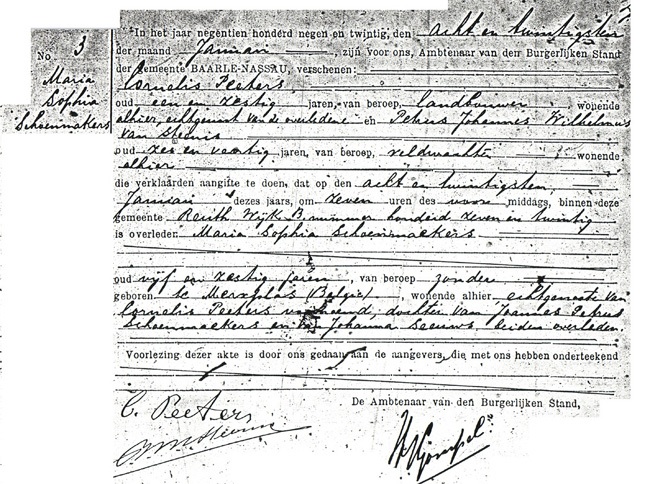 In het jaar negentien honderd negen en twintig, den acht en twintigsten
der maand Januari, zijn voor ons, Ambtenaar van den Burgerlijken Stand
der gemeente BAARLE-NASSAU, verschenen:
Cornelis Peeters,
oud een en zestig jaren, van beroep, landbouwer, wonende
alhier, echtgenoot van de overledene en Petrus Johannes Wilhelmus
van
oud zes en veertig jaren, van beroep, veldwachter, wonende
alhier
die verklaarden aangifte te doen, dat op den acht en twintigsten
Januari dezes jaars, om zeven uren des voor middags, binnen deze
gemeente Reuth Wijk B. nummer honderd zeven en twintig
is overleden Maria Sophia Schoenmaekers
oud vijf en zestig jaren, van beroep zonder
geboren te Merxplas (België), wonende alhier echtgenoote van
Cornelis Peeters voornoemd, dochter van Joannes Petrus
Schoenmaekers en van Johanna Leeuws, beiden overleden.
Voorlezing dezer akte is door ons gedaan aan de aangevers, die met ons hebben onderteekend
De Ambtenaar van den Burgerlijken Stand,
C. Peeters
No. 3
Maria
Sophia
Schoenmakers